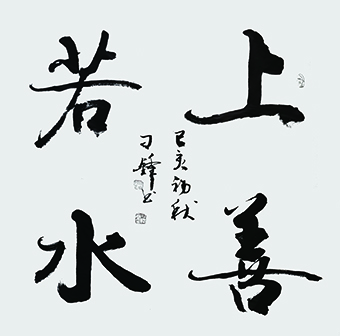 上善
若水
己亥初秋
刁锋书